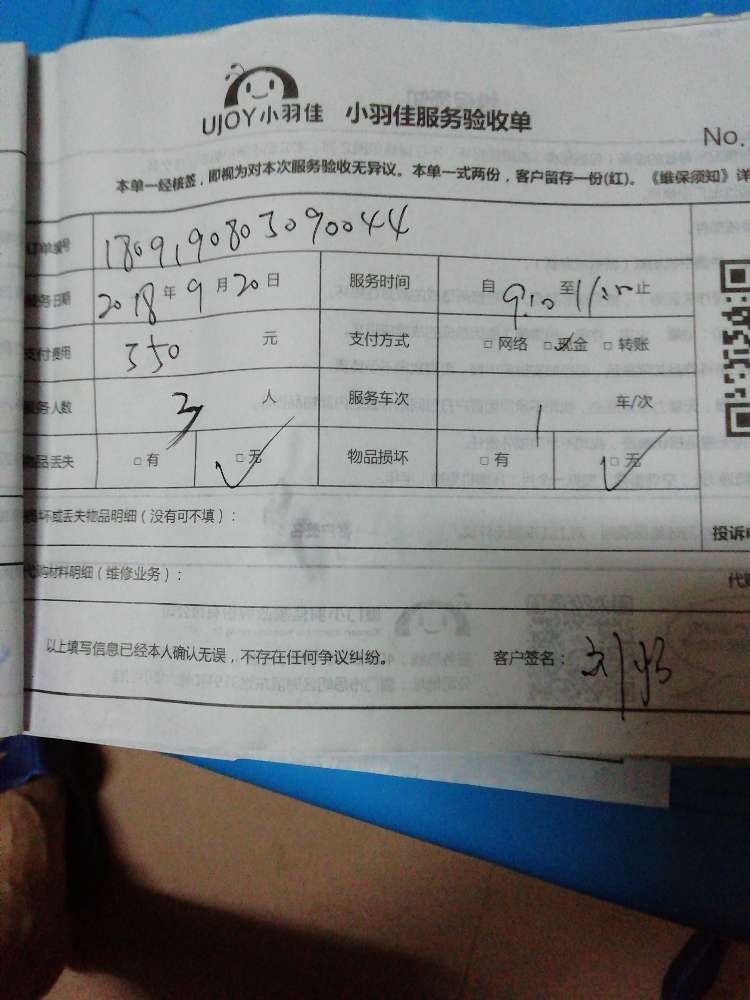 UJOY小羽佳 小羽佳服务验收单
No.
本单一经核签，即视为对本次服务验收无异议。本单一式两份，客户留存一份(红)。《维保须知》详
单编号 180919080309 0044
务日期 2018年9月20日 服务时间 自 9:10 至 11:20 止
支付费用 350 元 支付方式 □网络 □现金 □转账
服务人数 3 人 服务车次 1 车/次
物品丢失 □有 □无 物品损坏 □有 □无
坏或丢失物品明细（没有可不填）：
投诉
代购材料明细（维修业务）：
代
以上填写信息已经本人确认无误，不存在任何争议纠纷。 客户签名：刘